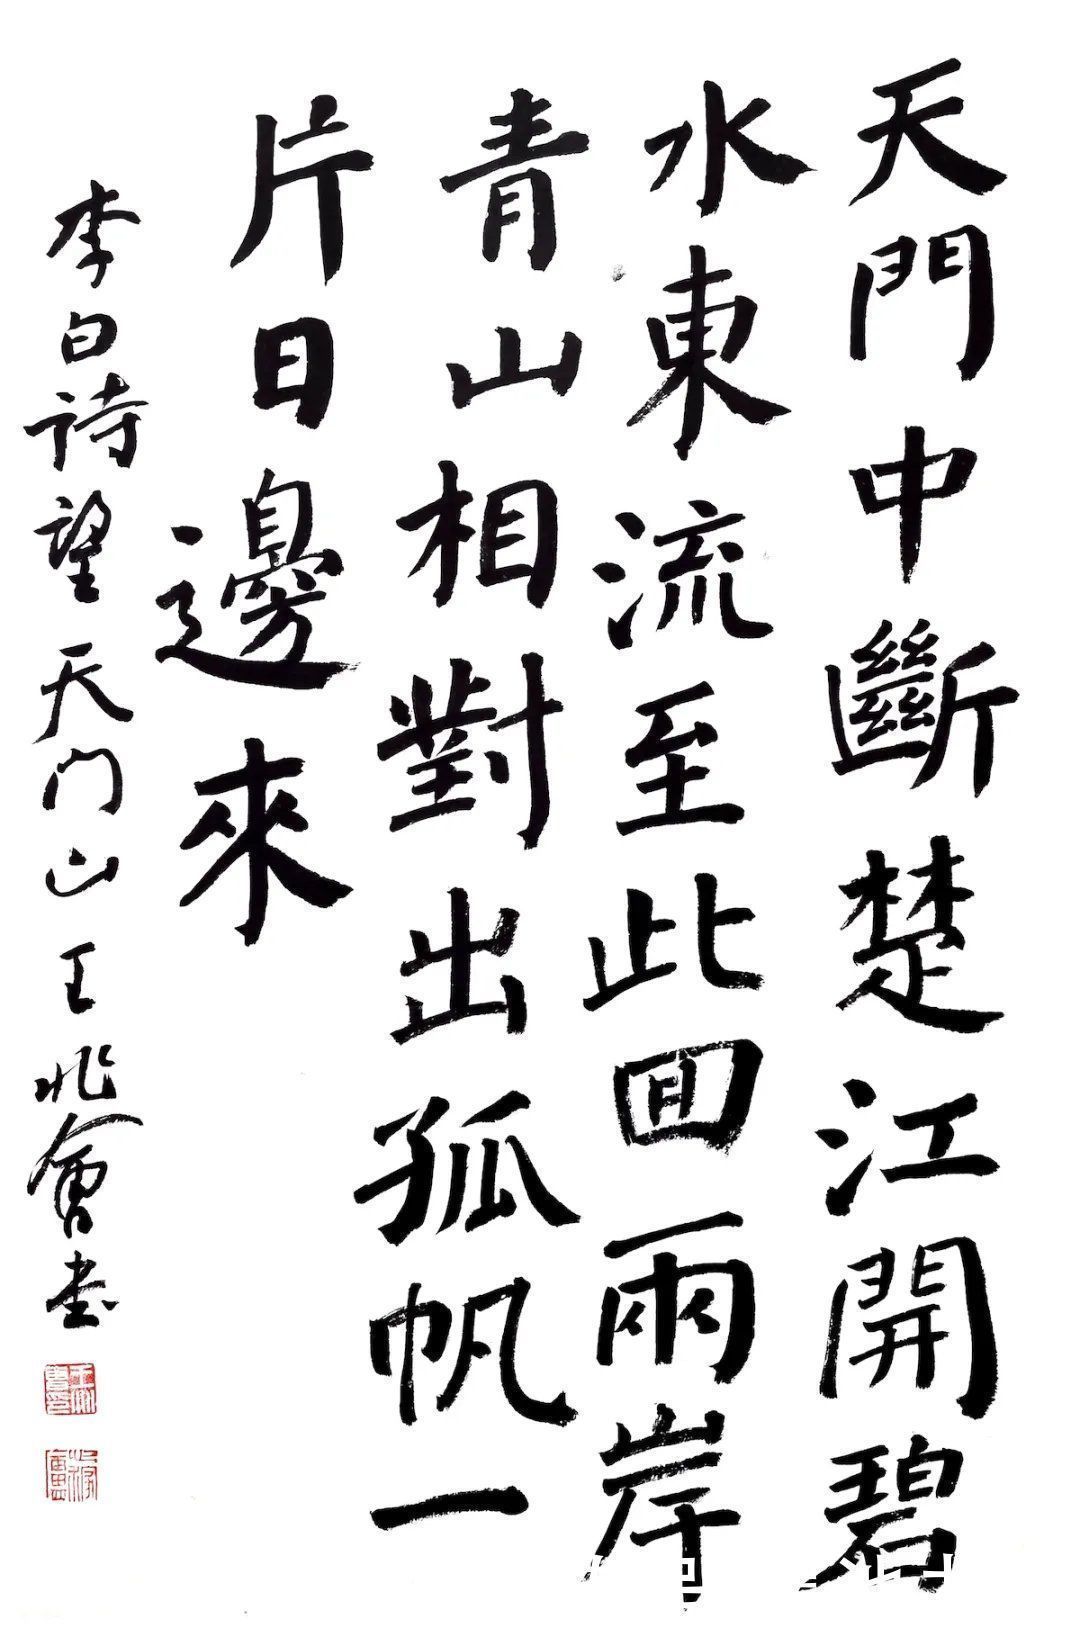 天門中斷楚江開碧
水東流至此囬兩岸
青山相對出孤帆一
片日邊來
李白詩望天门山王兆會书